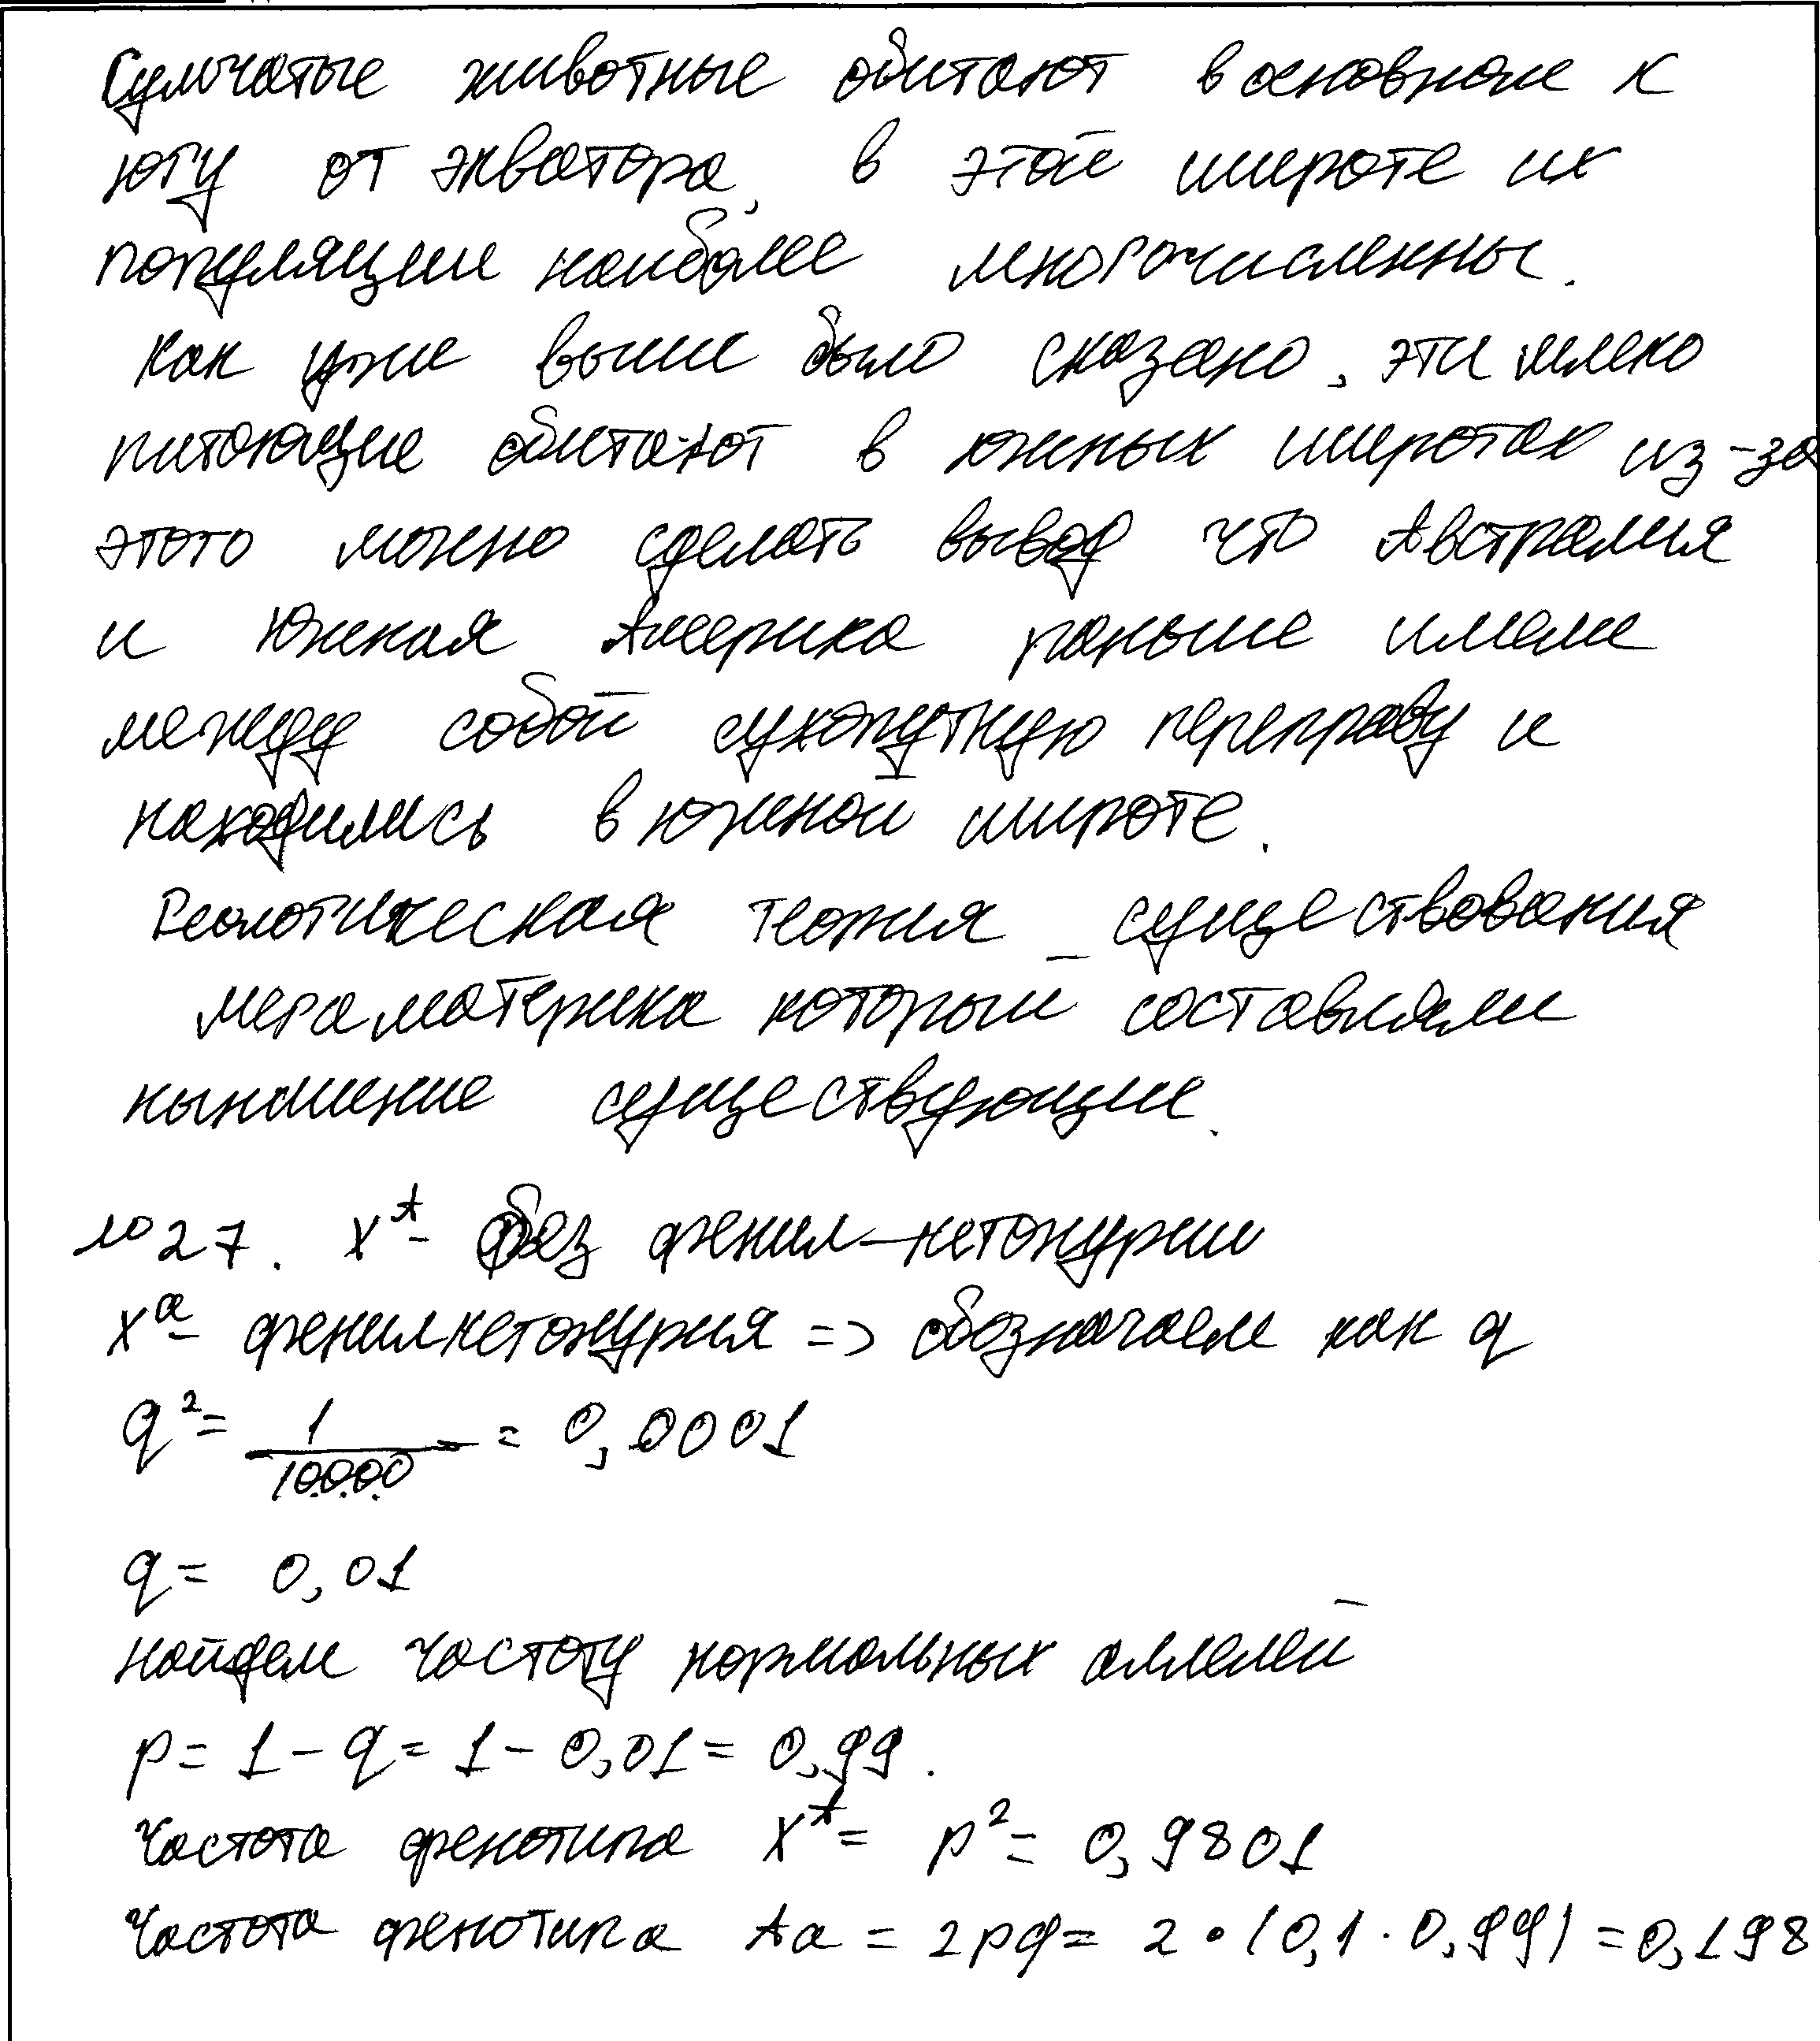 Сумчатые животные обитают в основном к
югу от экватора, в этой широте их
популяции наиболее многочисленны.
Как уже выше было сказано, эти млеко
питающие обитают в южных широтах из-за
этого можно сделать вывод что Австралия
и Южная Америка раньше имели
между собой сухопутную переправу и
находились в южной широте.
Геологическая теория существования
мегаматерика который составляли
нынешние существующие.
№27. X^A - без фенил-кетонурии
X^a - фенилкетонурия => обозначаем как q
q² = 1/10000 = 0,0001
q = 0,01
найдем частоту нормальных аллелей
p = 1 - q = 1 - 0,01 = 0,99.
Частота фенотипа X^A = p² = 0,9801
Частота фенотипа Aa = 2pq = 2 • (0,1 · 0,99) = 0,198